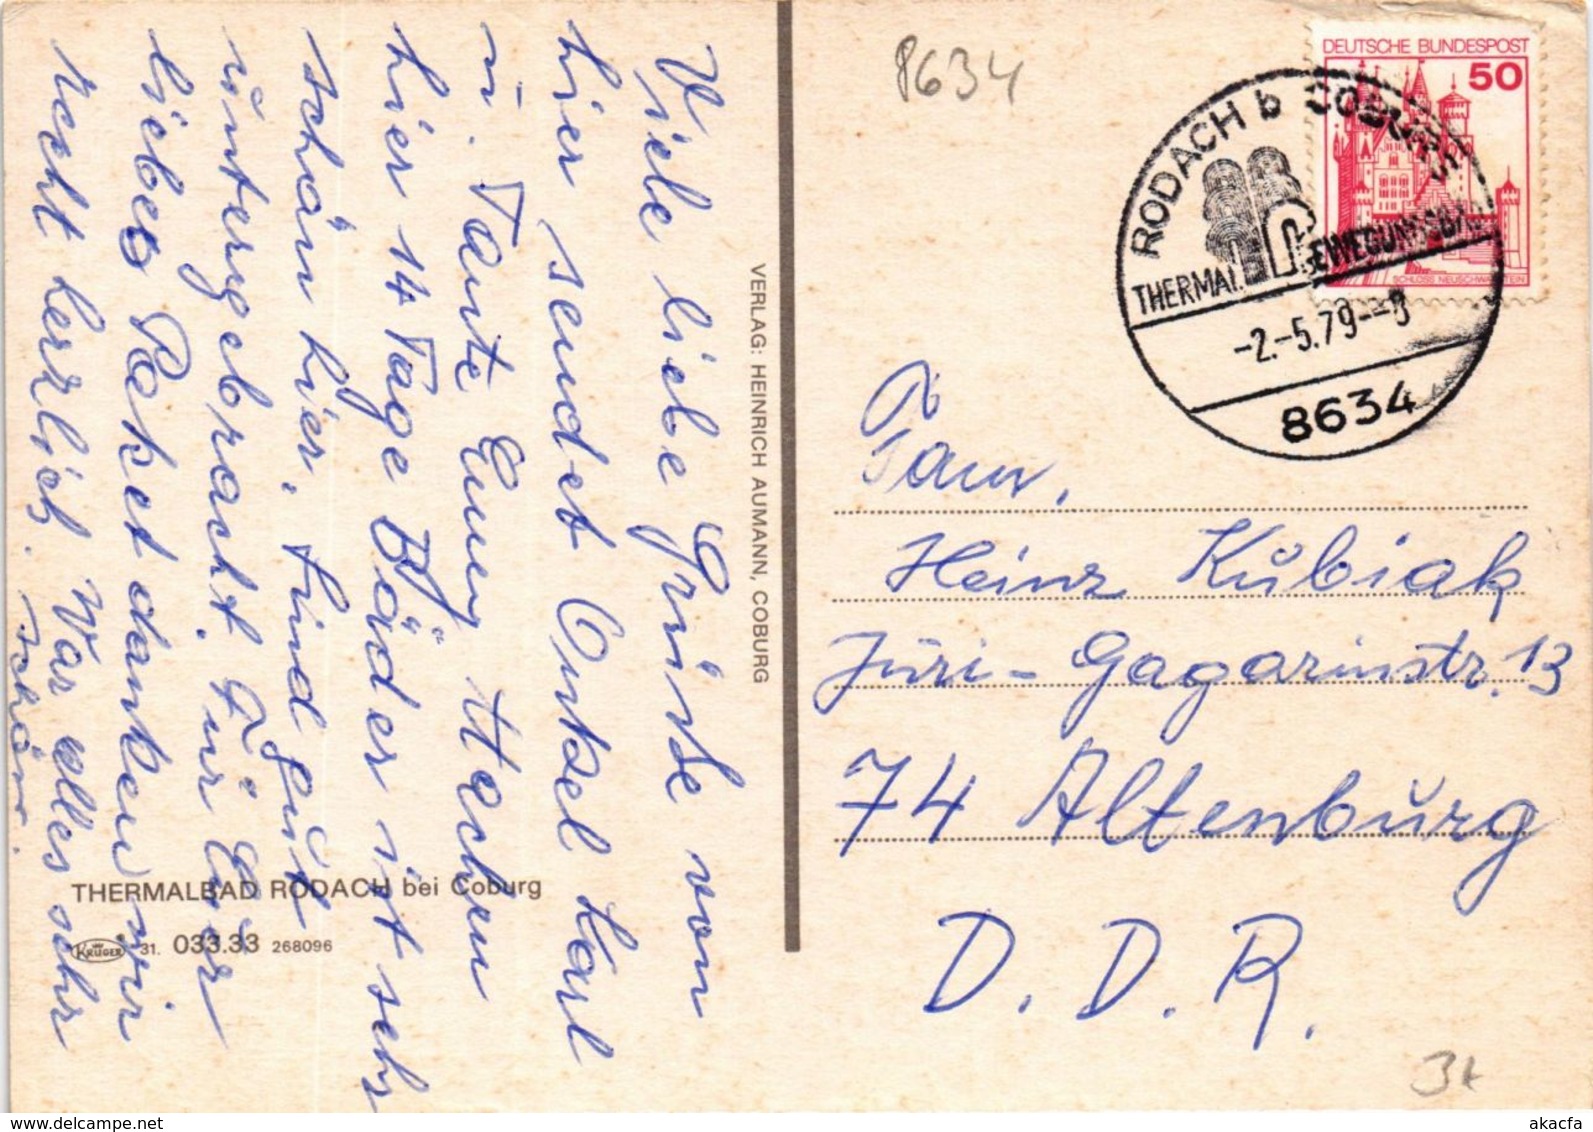 Viele liebe Grüße vom
hier sendet Onkel Karl
u. Tante Emmy Hachen
hier 14 Tage Bäder ist sehr
schön hier, sind gut
untergebracht. Für Euer
liebes Paket danken wir
recht herzlich. War alles sehr
schön.
THERMALBAD RODACH bei Coburg
KRÜGER 31. 033.33 268096
VERLAG: HEINRICH AUMANN, COBURG
8634
DEUTSCHE BUNDESPOST
50
SCHLOSS NEUSCHWANSTEIN
RODACH b COBURG
THERMAL BEWEGUNGSBAD
-2.-5.79--8
8634
Fam.
Heinz Kubiak
Juri-Gagarinstr. 13
74 Altenburg
D. D. R.
delcampe.net
akacfa